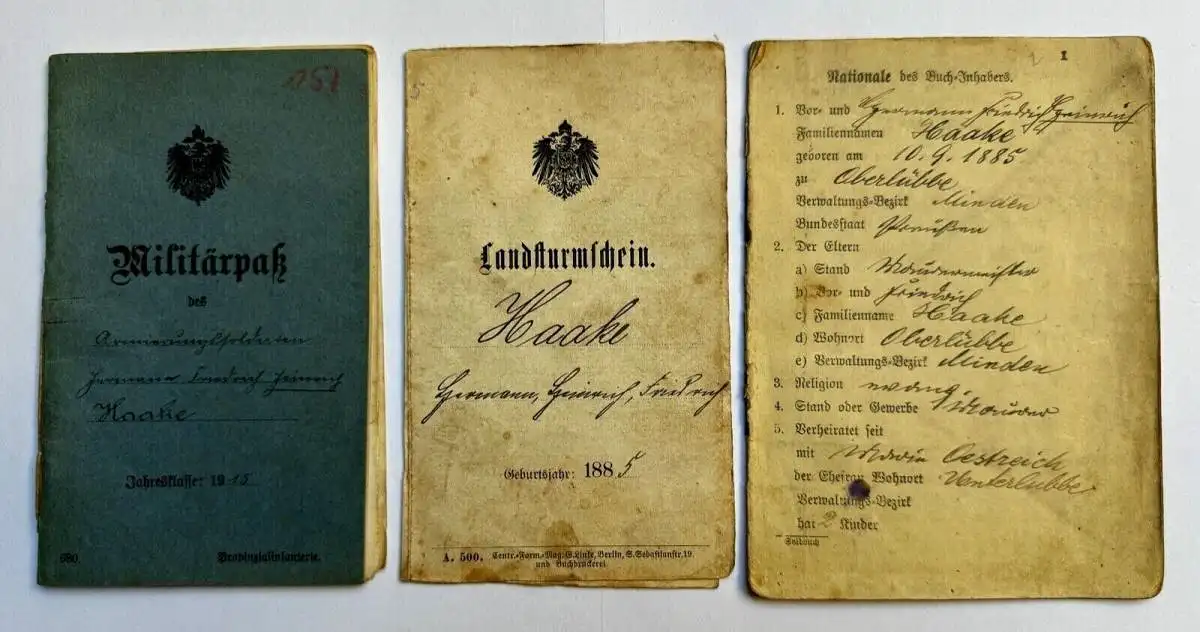 157
Militärpaß
des
Armierungssoldaten
Hermann Friedrich Heinrich
Haake
Jahresklasse: 1915
680.
Provinzialinfanterie.
Landsturmschein.
Haake
Hermann, Heinrich, Friedrich
Geburtsjahr: 1885
A. 500. Centr.-Form.-Mag. S. Linke, Berlin, S. Sebastianstr. 19
und Buchdruckerei
1
Nationale des Buch-Inhabers.
1. Vor- und Hermann Friedrich Heinrich
Familiennamen Haake
geboren am 10.9.1885
zu Oberlübbe
Verwaltungs-Bezirk Minden
Bundesstaat Preußen
2. Der Eltern
a) Stand Maurermeister
b) Vor- und Friedrich
c) Familienname Haake
d) Wohnort Oberlübbe
e) Verwaltungs-Bezirk Minden
3. Religion evang.
4. Stand oder Gewerbe Maurer
5. Verheiratet seit
mit Marie Oestreich
der Ehefrau Wohnort Unterlübbe
Verwaltungs-Bezirk
hat 2 Kinder
Soldbuch